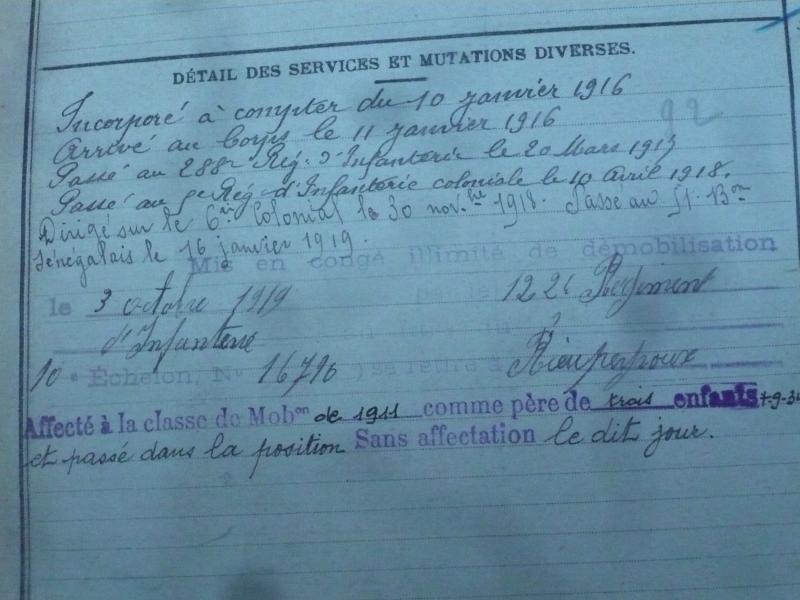 DÉTAIL DES SERVICES ET MUTATIONS DIVERSES.
Incorporé à compter du 10 janvier 1916
Arrivé au Corps le 11 janvier 1916
92
Passé au 288e Rég. d'Infanterie le 20 Mars 1917
Passé au 5e Rég. d'Infanterie coloniale le 10 Avril 1918.
Dirigé sur le 6e Colonial le 30 nov.bre 1918. Passé au 51. Bon
Sénégalais le 16 janvier 1919.
Mis en congé illimité de démobilisation
le 3 octobre 1919 par le 122e Régiment
d'Infanterie
10e Échelon, No 16796 se retire à Rieupeyroux
Affecté à la classe de Mobon de 1911 comme père de trois enfants
et passé dans la position Sans affectation le dit jour.